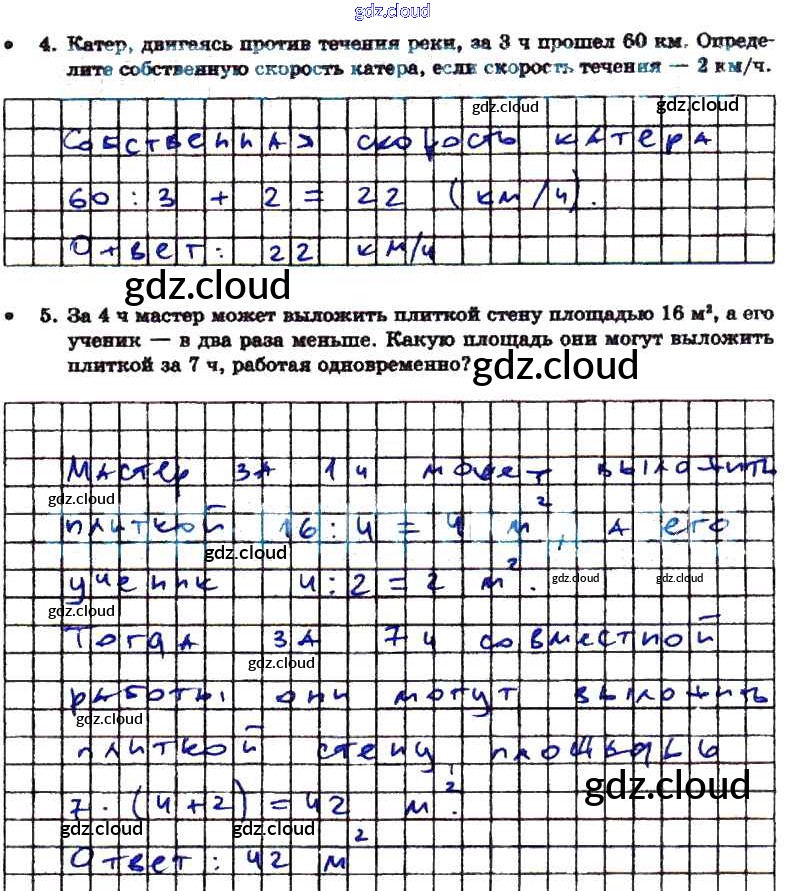 gdz.cloud
• 4. Катер, двигаясь против течения реки, за 3 ч прошел 60 км. Опреде-
лите собственную скорость катера, если скорость течения — 2 км/ч.
gdz.cloud gdz.cloud
Собственная скорость катера
60 : 3 + 2 = 22 (км/ч).
Ответ: 22 км/ч
gdz.cloud
• 5. За 4 ч мастер может выложить плиткой стену площадью 16 м², а его
ученик — в два раза меньше. Какую площадь они могут выложить
плиткой за 7 ч, работая одновременно?
gdz.cloud
Мастер за 1 ч может выложить
gdz.cloud
плиткой 16 : 4 = 4 м², а его
gdz.cloud
ученик 4 : 2 = 2 м².
gdz.cloud gdz.cloud
gdz.cloud
Тогда за 7 ч совместной
gdz.cloud
работы они могут выложить
gdz.cloud
плиткой стену площадью
gdz.cloud
7 · (4 + 2) = 42 м².
gdz.cloud gdz.cloud
Ответ: 42 м²